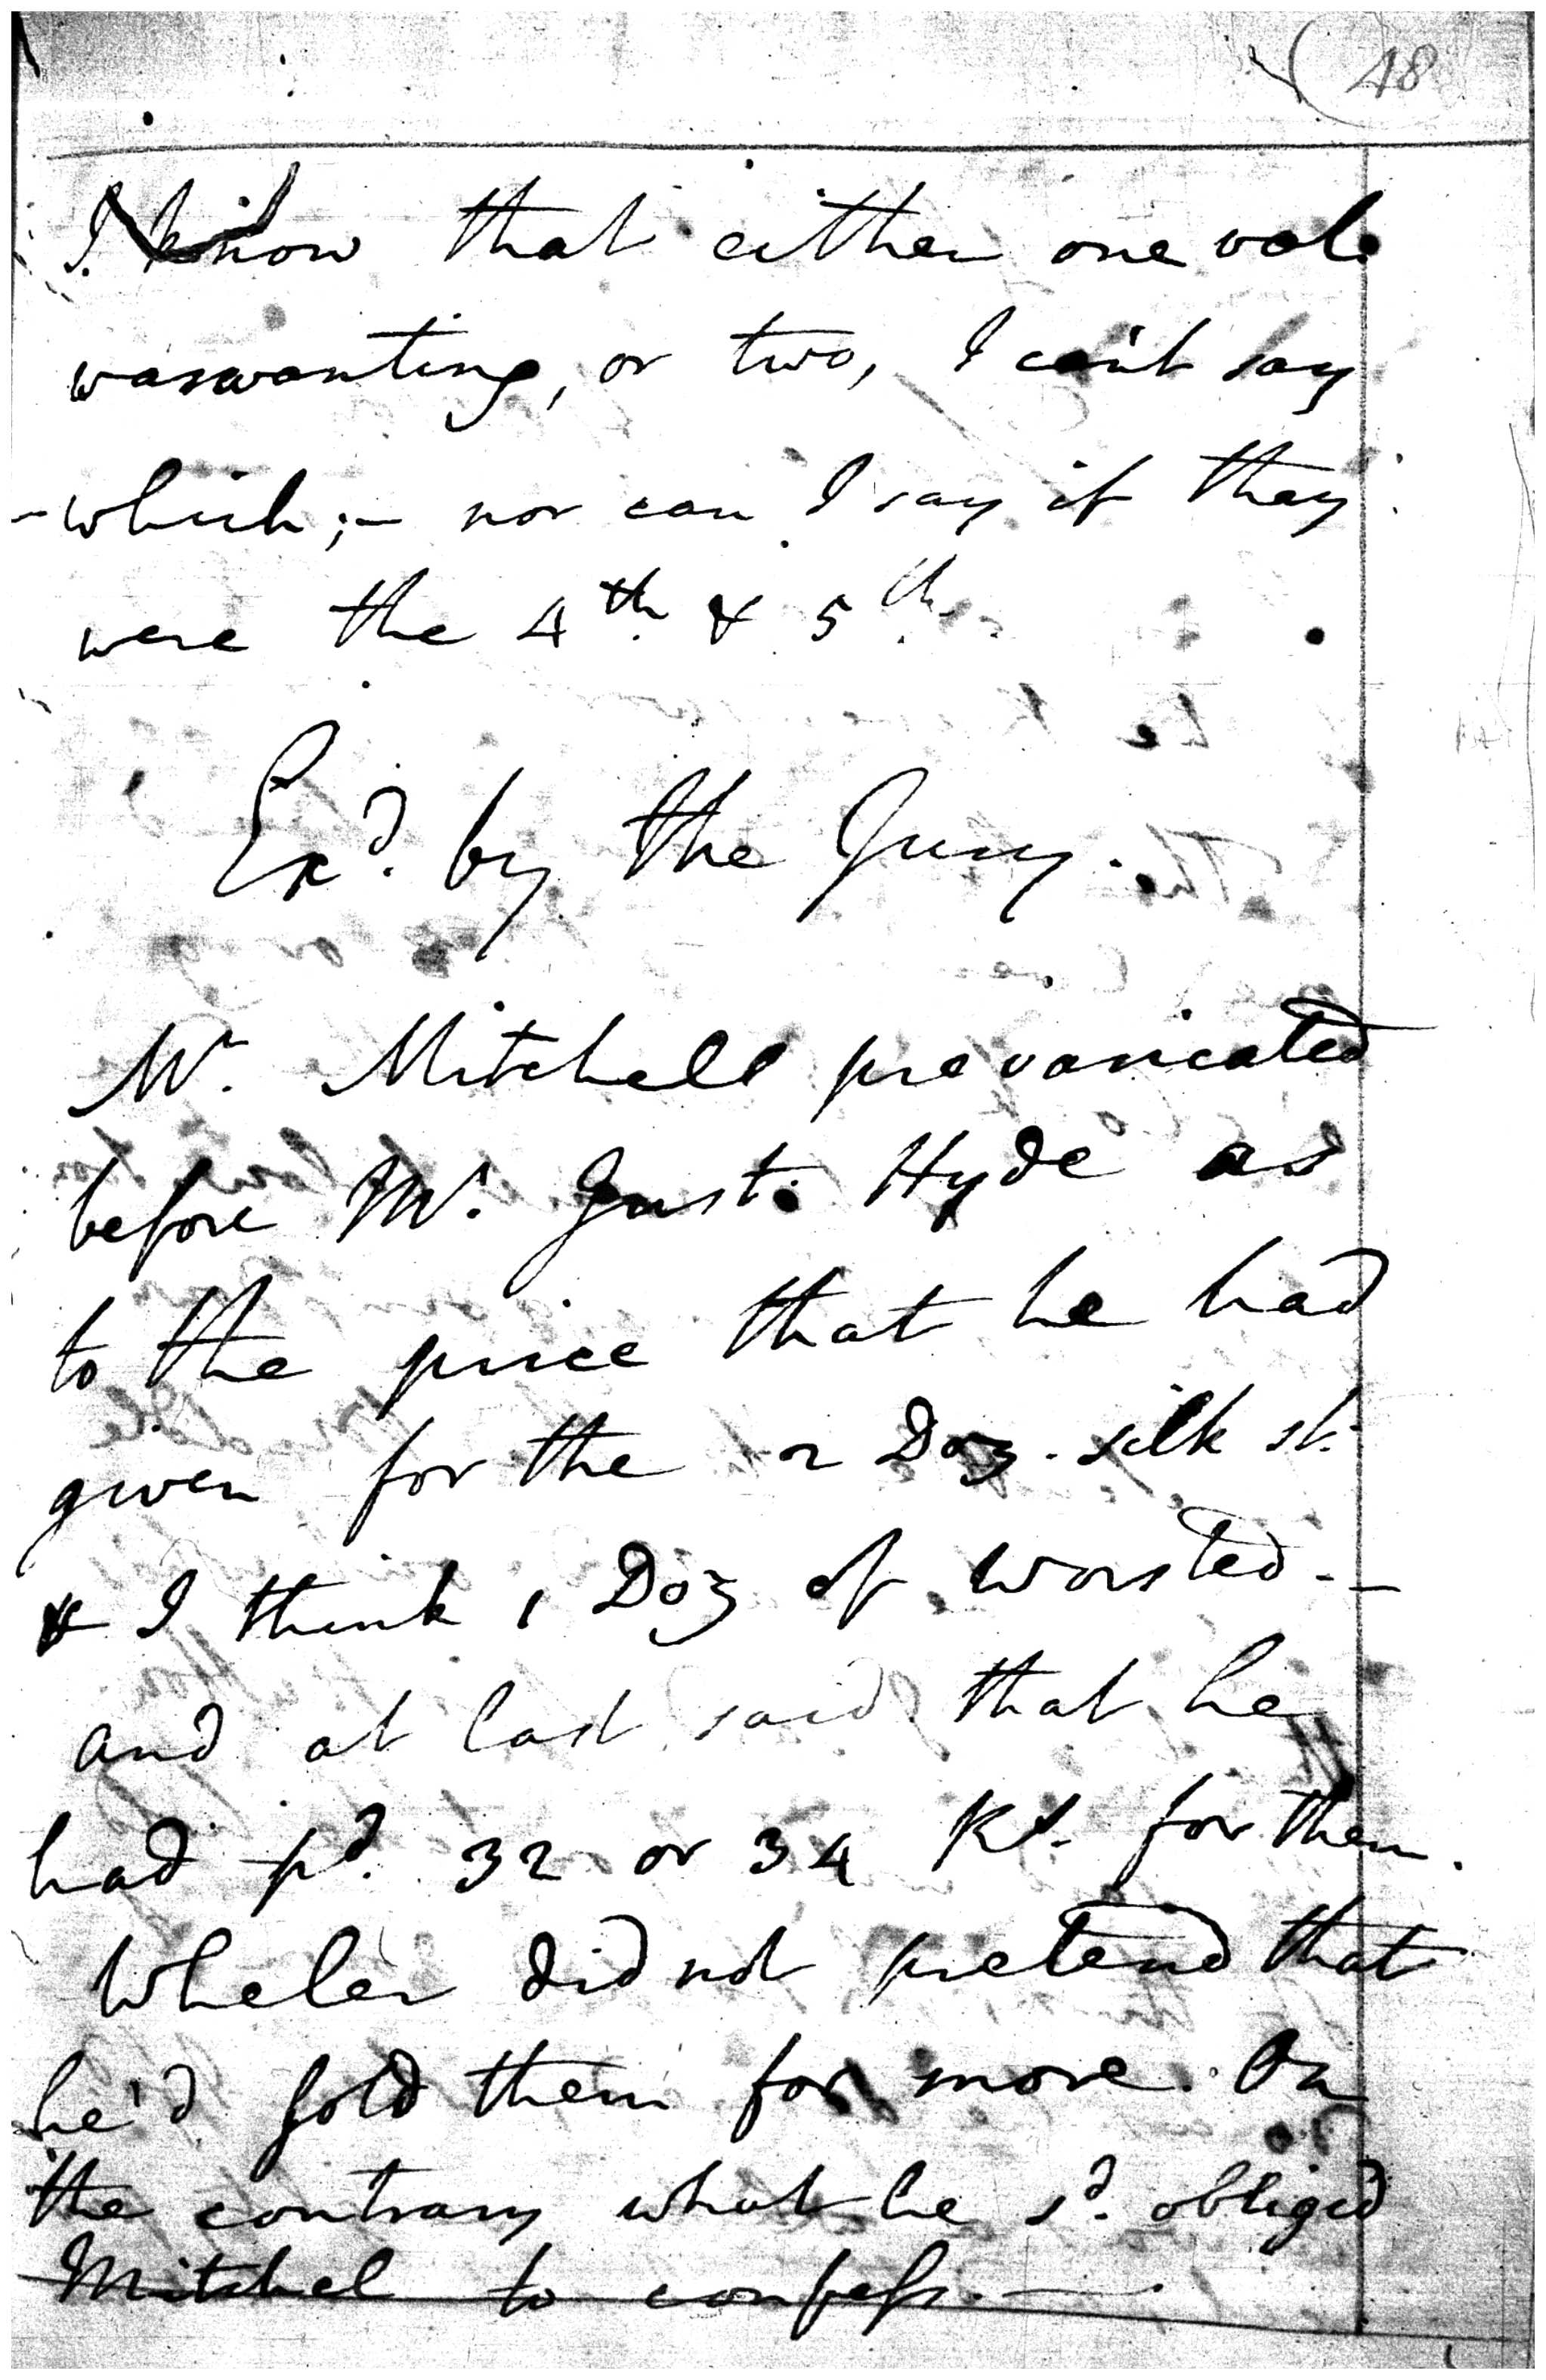 48
I know that either one vol.
was wanting, or two, I can't say
which; - nor can I say if they
were the 4th. & 5th.
Exd. by the Jury.
Mr. Mitchell prevaricated
before Mr. Just. Hyde as
to the price that he had
given for the 2 Doz. silk st.
& I think 1 Doz of worsted --
and at last said that he
had pd. 32 or 34 Rs. for them.
Wheler did not pretend that
he'd sold them for more. On
the contrary what he sd. obliged
Mitchel to confess. —